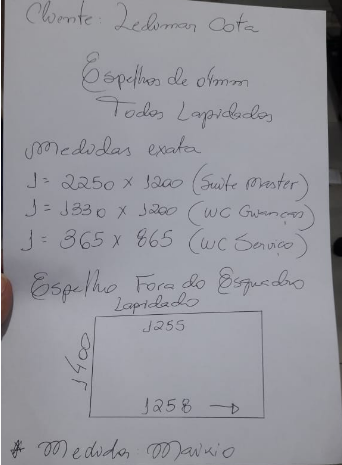 Cliente: Ledumar Cota
Espelhos de 04mm
Todos Lapidados
Medidas exata
1= 2250 x 1200 (Suite Master)
1= 1330 x 1200 (WC Crianças)
1= 365 x 865 (WC Serviço)
Espelho Fora do Esquadro
Lapidado
1255
1400
1258 →
* Medidas